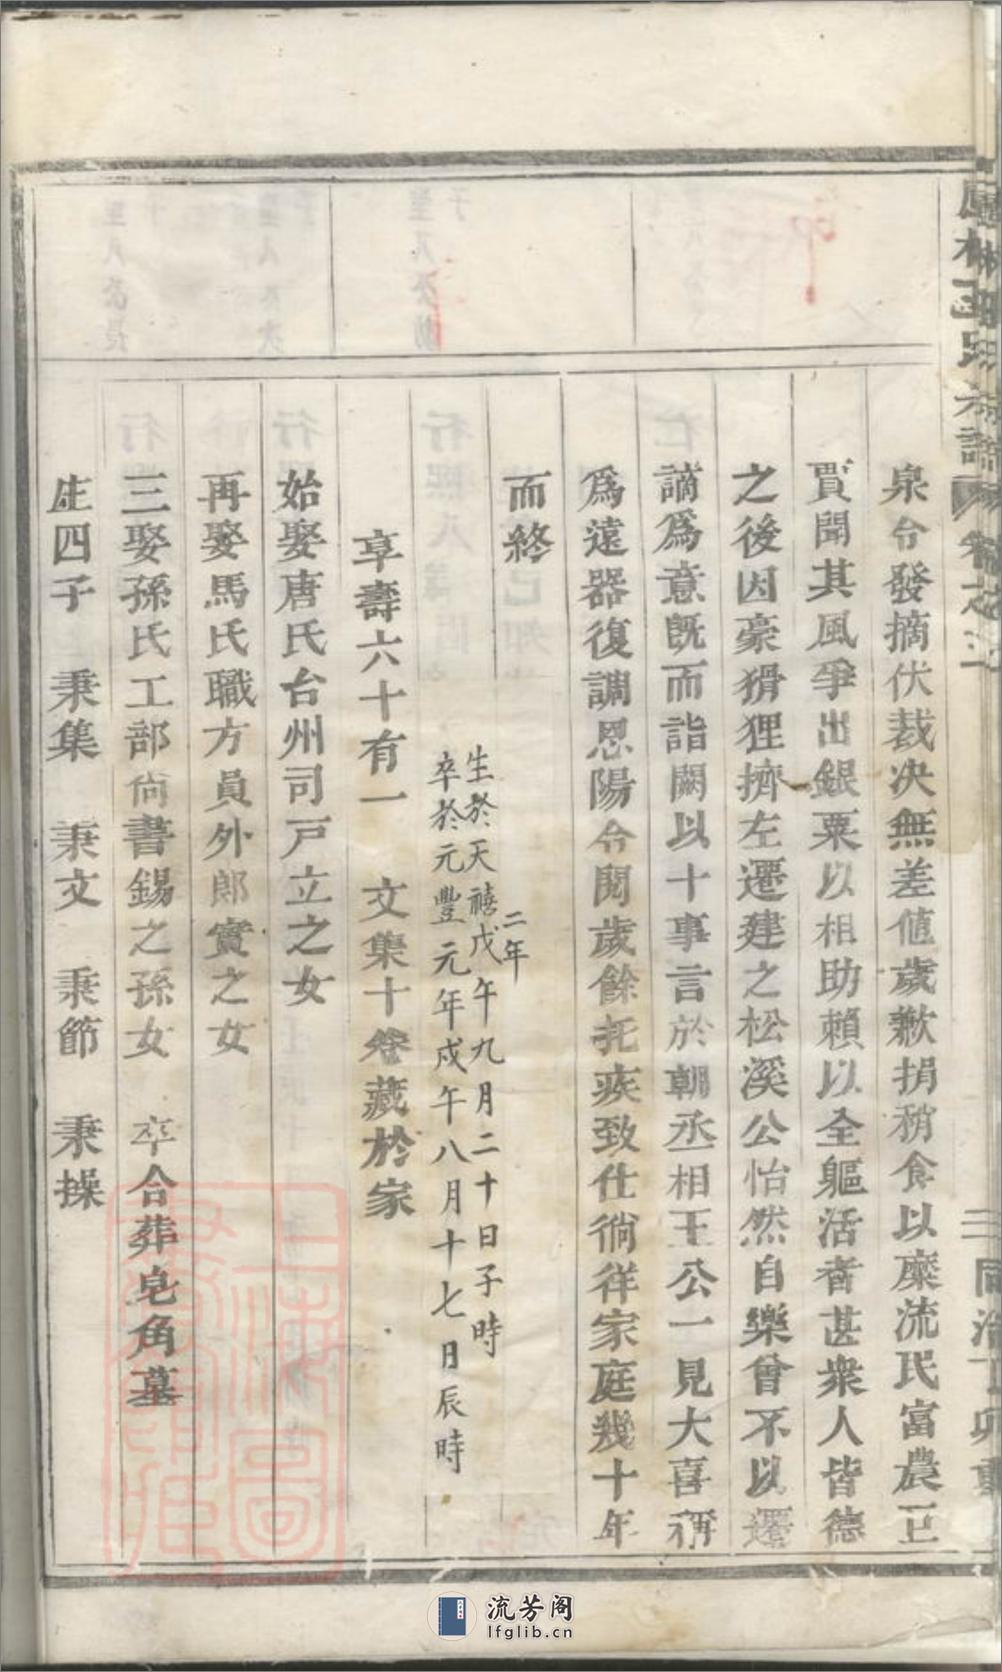 泉令發摘伏裁決無差値歲歉捐稍食以糜流民富農巨
賈聞其風爭出銀粟以相助賴以全軀活者甚衆人皆德
之後因豪猾狸擠左遷建之松溪公怡然自樂曾不以遷
謫爲意旣而詣闕以十事言於朝丞相王公一見大喜稱
爲遠器復調恩陽令閱歲餘托疾致仕徜徉家庭幾十年
而終
生於天禧二年戊午九月二十日子時
卒於元豐元年戊午八月十七日辰時
享壽六十有一 文集十卷藏於家
始娶唐氏台州司戸立之女
再娶馬氏職方員外郎實之女
三娶孫氏工部尙書錫之孫女 卒合葬皂角墓
生四子 秉集 秉文 秉節 秉操
流芳阁
lfglib.cn